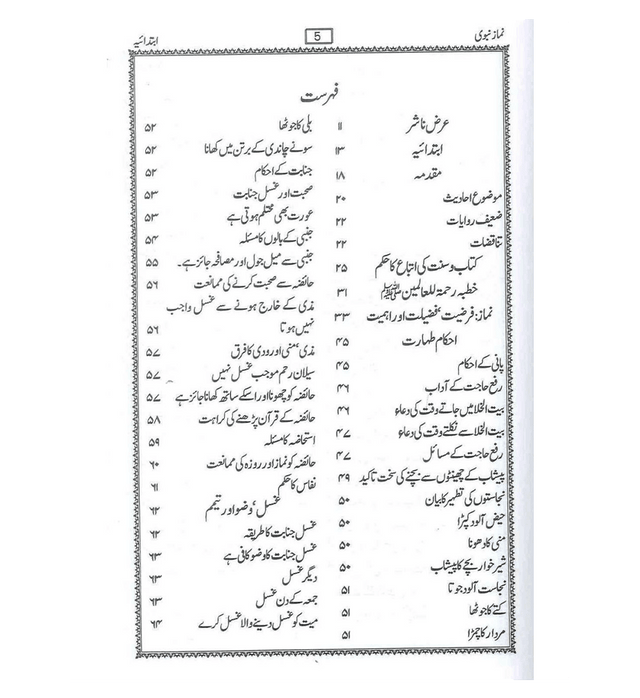 نماز نبوی
5
ابتدائیہ
فہرست
عرض ناشر ۱۱
ابتدائیہ ۱۳
مقدمہ ۱۸
موضوع احادیث ۲۰
ضعیف روایات ۲۲
تناقضات ۲۲
کتاب و سنت کی اتباع کا حکم ۲۵
خطبہ رحمۃ للعالمین ﷺ ۳۱
نماز: فرضیت، فضیلت اور اہمیت ۳۳
احکام طہارت ۴۵
پانی کے احکام ۴۵
رفع حاجت کے آداب ۴۶
بیت الخلا میں جاتے وقت کی دعاء ۴۶
بیت الخلا سے نکلتے وقت کی دعاء ۴۷
رفع حاجت کے مسائل ۴۷
پیشاب کے چھینٹوں سے بچنے کی سخت تاکید ۴۹
نجاستوں کی تطہیر کا بیان ۵۰
حیض آلود کپڑا ۵۰
منی کا دھونا ۵۰
شیر خوار بچے کا پیشاب ۵۰
نجاست آلود جوتا ۵۱
کتے کا جوٹھا ۵۱
مردار کا چمڑا ۵۱
بلی کا جوٹھا ۵۲
سونے چاندی کے برتن میں کھانا ۵۲
جنابت کے احکام ۵۲
صحبت اور غسل جنابت ۵۳
عورت بھی محتلم ہوتی ہے ۵۳
جنبی کے بالوں کا مسئلہ ۵۴
جنبی سے میل جول اور مصافحہ جائز ہے۔ ۵۵
حائضہ سے صحبت کرنے کی ممانعت ۵۶
مذی کے خارج ہونے سے غسل واجب
نہیں ہوتا ۵۶
مذی، منی اور ودی کا فرق ۵۷
سیلان رحم موجب غسل نہیں ۵۷
حائضہ کو چھونا اور اسکے ساتھ کھانا جائز ہے ۵۷
حائضہ کے قرآن پڑھنے کی کراہت ۵۸
استحاضہ کا مسئلہ ۵۹
حائضہ کو نماز اور روزہ کی ممانعت ۶۰
نفاس کا حکم ۶۱
غسل، وضو اور تیمم ۶۲
غسل جنابت کا طریقہ ۶۲
غسل جنابت کا وضو کافی ہے ۶۳
دیگر غسل ۶۳
جمعہ کے دن غسل ۶۳
میت کو غسل دینے والا غسل کرے ۶۴